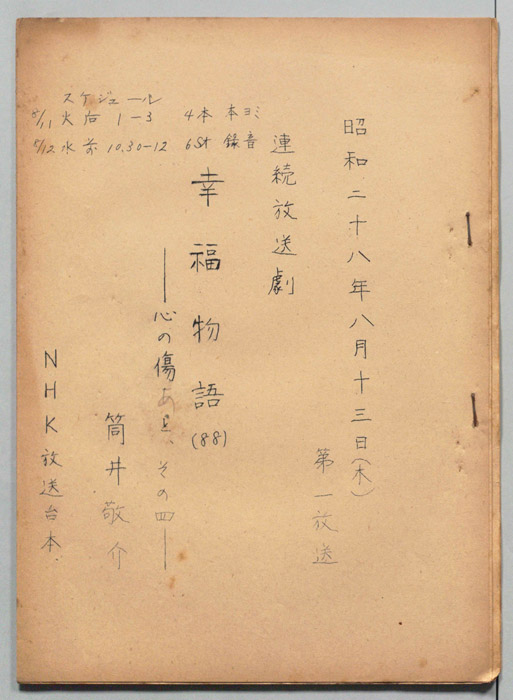 昭和二十八年八月十三日(木)
第一放送
連続放送劇
幸福物語(88)
――心の傷あと、その四――
筒井敬介
NHK放送台本.
スケジュール
8/11 火后 1-3 4本 本ヨミ
8/12 水前 10.30-12 6St 録音